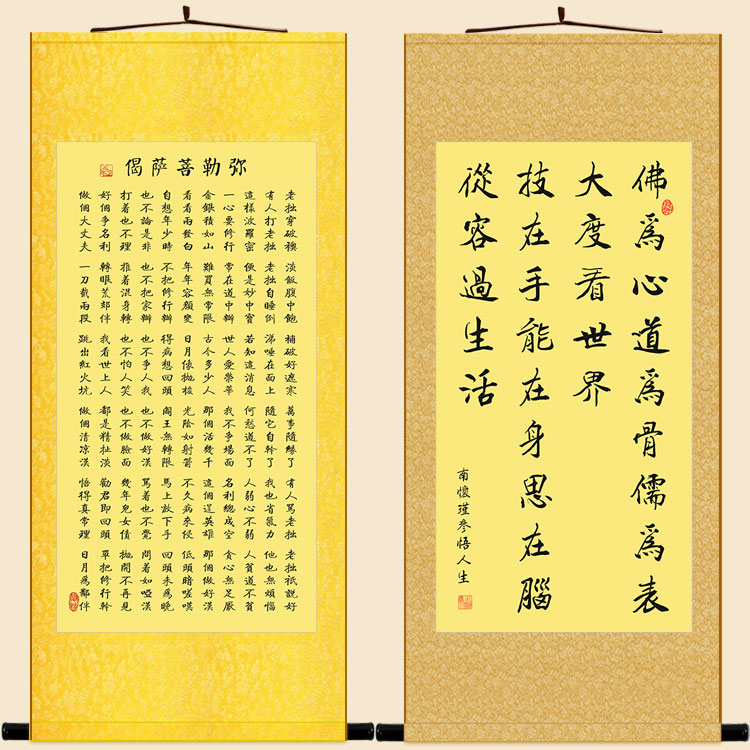 弥勒菩萨偈
老拙穿破襖 淡飯腹中飽 補破好遮寒 萬事隨緣了 有人罵老拙 老拙祇説好
有人打老拙 老拙自睡倒 涕唾在面上 隨它自幹了 我也省氣力 他也無煩惱
這樣波羅密 便是妙中寶 若知這消息 何愁道不了 人弱心不弱 人貧道不貧
一心要修行 常在道中辦 世人愛榮華 我不争場面 名利總成空 貪心無足厭
金銀積如山 難買無常限 古今多少人 那個活幾千 這個逞英雄 那個做好漢
看看兩發白 年年容顔變 日月像抛梭 光陰如射箭 不久病來侵 低頭暗嗟嘆
自想年少時 不把修行辦 得病想回頭 閻王無轉限 馬上放下手 回頭未爲晚
也不論是非 也不把家辦 也不争人我 也不做好漢 罵着也不覺 問着如啞漢
打着也不理 推着混身轉 也不怕人笑 也不做臉面 幾年兒女債 抛開不再見
好個争名利 轉眼荒郊伴 我看世上人 都是精扯淡 勸君即回頭 單把修行幹
做個大丈夫 一刀截兩段 跳出紅火坑 做個清凉漢 悟得真常理 日月爲鄰伴
佛爲心道爲骨儒爲表
大度看世界
技在手能在身思在腦
從容過生活
南懷瑾參悟人生